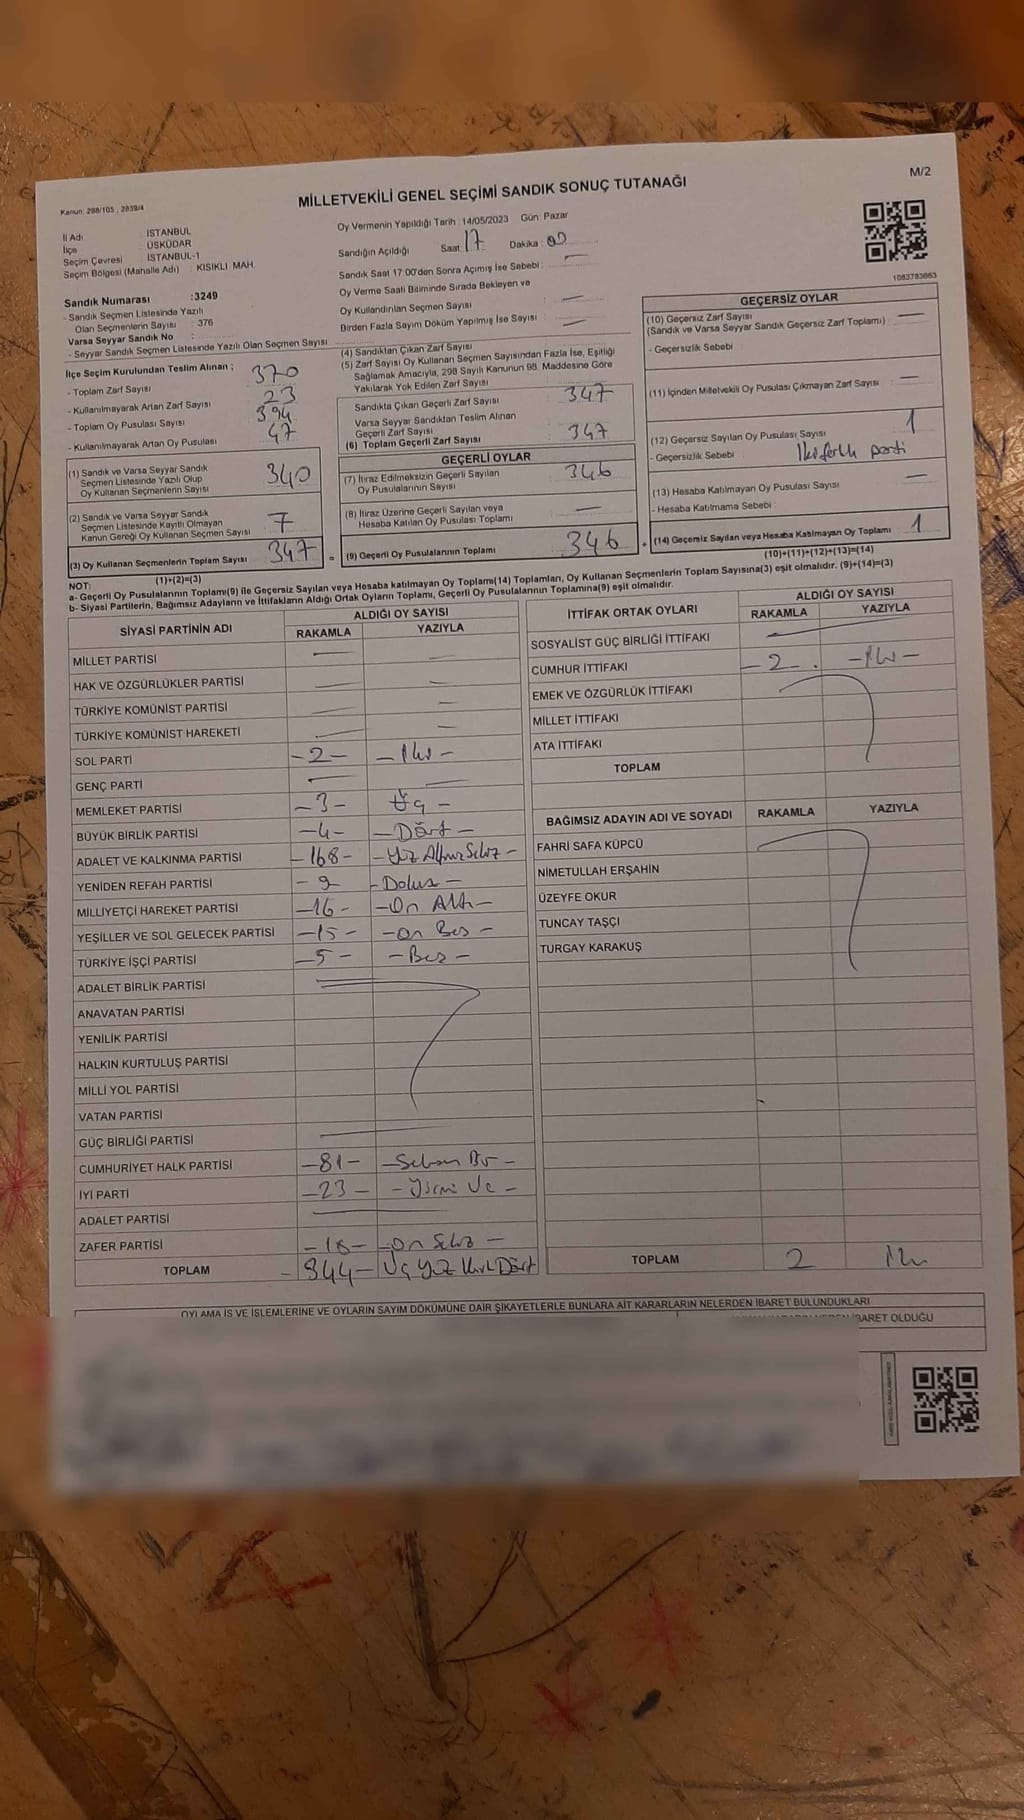 MİLLETVEKİLİ GENEL SEÇİMİ SANDIK SONUÇ TUTANAĞI
M/2
Kanun: 298/105 , 2839/4
İl Adı : İSTANBUL
İlçe : ÜSKÜDAR
Seçim Çevresi : İSTANBUL-1
Seçim Bölgesi (Mahalle Adı) : KISIKLI MAH.
Sandık Numarası :3249
- Sandık Seçmen Listesinde Yazılı
Olan Seçmenlerin Sayısı : 376
Varsa Seyyar Sandık No :
- Seyyar Sandık Seçmen Listesinde Yazılı Olan Seçmen Sayısı
Oy Vermenin Yapıldığı Tarih : 14/05/2023 Gün: Pazar
Sandığın Açıldığı Saat : 17 Dakika : 00
Sandık Saat 17:00'den Sonra Açımış İse Sebebi : —
Oy Verme Saati Bitiminde Sırada Bekleyen ve
Oy Kullandırılan Seçmen Sayısı : —
Birden Fazla Sayım Döküm Yapılmış İse Sayısı : —
1083783663
İlçe Seçim Kurulundan Teslim Alınan ;
- Toplam Zarf Sayısı 370
- Kullanılmayarak Artan Zarf Sayısı 23
- Toplam Oy Pusulası Sayısı 394
- Kullanılmayarak Artan Oy Pusulası 47
(1) Sandık ve Varsa Seyyar Sandık
Seçmen Listesinde Yazılı Olup
Oy Kullanan Seçmenlerin Sayısı 340
(2) Sandık ve Varsa Seyyar Sandık
Seçmen Listesinde Kayıtlı Olmayan
Kanun Gereği Oy Kullanan Seçmen Sayısı 7
(3) Oy Kullanan Seçmenlerin Toplam Sayısı 347 =
(1)+(2)=(3)
(4) Sandıktan Çıkan Zarf Sayısı
(5) Zarf Sayısı Oy Kullanan Seçmen Sayısından Fazla İse, Eşitliği
Sağlamak Amacıyla, 298 Sayılı Kanunun 98. Maddesine Göre
Yakılarak Yok Edilen Zarf Sayısı
Sandıkta Çıkan Geçerli Zarf Sayısı 347
Varsa Seyyar Sandıktan Teslim Alınan
Geçerli Zarf Sayısı
(6) Toplam Geçerli Zarf Sayısı 347
GEÇERLİ OYLAR
(7) İtiraz Edilmeksizin Geçerli Sayılan
Oy Pusulalarının Sayısı 346
(8) İtiraz Üzerine Geçerli Sayılan veya
Hesaba Katılan Oy Pusulası Toplamı —
(9) Geçerli Oy Pusulalarının Toplamı 346 +
GEÇERSİZ OYLAR
(10) Geçersiz Zarf Sayısı —
(Sandık ve Varsa Seyyar Sandık Geçersiz Zarf Toplamı) :
- Geçersizlik Sebebi :
(11) İçinden Milletvekili Oy Pusulası Çıkmayan Zarf Sayısı —
(12) Geçersiz Sayılan Oy Pusulası Sayısı 1
- Geçersizlik Sebebi : parti
(13) Hesaba Katılmayan Oy Pusulası Sayısı —
- Hesaba Katılmama Sebebi :
(14) Geçersiz Sayılan veya Hesaba Katılmayan Oy Toplamı 1
(10)+(11)+(12)+(13)=(14)
NOT:
a- Geçerli Oy Pusulalarının Toplamı(9) ile Geçersiz Sayılan veya Hesaba katılmayan Oy Toplamı(14) Toplamları, Oy Kullanan Seçmenlerin Toplam Sayısına(3) eşit olmalıdır. (9)+(14)=(3)
b- Siyasi Partilerin, Bağımsız Adayların ve İttifakların Aldığı Ortak Oyların Toplamı, Geçerli Oy Pusulalarının Toplamına(9) eşit olmalıdır.
SİYASİ PARTİNİN ADI ALDIĞI OY SAYISI
RAKAMLA YAZIYLA
MİLLET PARTİSİ — —
HAK VE ÖZGÜRLÜKLER PARTİSİ — —
TÜRKİYE KOMÜNİST PARTİSİ — —
TÜRKİYE KOMÜNİST HAREKETİ — —
SOL PARTİ -2- -İki-
GENÇ PARTİ — —
MEMLEKET PARTİSİ -3- Üç -
BÜYÜK BİRLİK PARTİSİ -4- -Dört-
ADALET VE KALKINMA PARTİSİ -168- -Yüz Altmış Sekiz-
YENİDEN REFAH PARTİSİ -9 -Dokuz-
MİLLİYETÇİ HAREKET PARTİSİ -16- -On Altı-
YEŞİLLER VE SOL GELECEK PARTİSİ -15- -On Beş-
TÜRKİYE İŞÇİ PARTİSİ -5- -Beş-
ADALET BİRLİK PARTİSİ
ANAVATAN PARTİSİ
YENİLİK PARTİSİ
HALKIN KURTULUŞ PARTİSİ
MİLLİ YOL PARTİSİ
VATAN PARTİSİ
GÜÇ BİRLİĞİ PARTİSİ
CUMHURİYET HALK PARTİSİ -81- -Seksen Bir-
İYİ PARTİ -23- -Yirmi Üç-
ADALET PARTİSİ —
ZAFER PARTİSİ -18- -On Sekiz-
TOPLAM -344- Üç Yüz Kırk Dört
İTTİFAK ORTAK OYLARI ALDIĞI OY SAYISI
RAKAMLA YAZIYLA
SOSYALİST GÜÇ BİRLİĞİ İTTİFAKI —
CUMHUR İTTİFAKI -2- -İki-
EMEK VE ÖZGÜRLÜK İTTİFAKI
MİLLET İTTİFAKI
ATA İTTİFAKI
TOPLAM
BAĞIMSIZ ADAYIN ADI VE SOYADI RAKAMLA YAZIYLA
FAHRİ SAFA KÜPCÜ
NİMETULLAH ERŞAHİN
ÜZEYFE OKUR
TUNCAY TAŞÇI
TURGAY KARAKUŞ
TOPLAM 2 İki
OYLAMA İŞ VE İŞLEMLERİNE VE OYLARIN SAYIM DÖKÜMÜNE DAİR ŞİKAYETLERLE BUNLARA AİT KARARLARIN NELERDEN İBARET BULUNDUKLARI
İBARET OLDUĞU